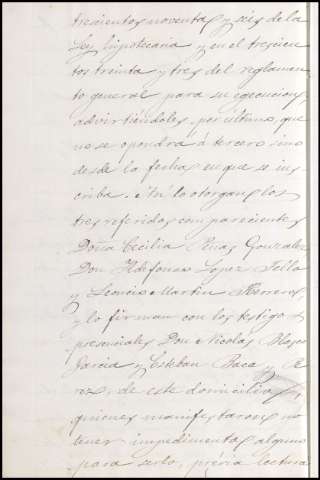 trescientos noventa y seis de la
Ley hipotecaria y en el trescien
tos treinta y tres del reglamen
to general para su egecucion,
advirtiendoles, por ultimo, que
no se opondrá á tercero sino
desde la fecha en que se ins
criba. Así lo otorgan los
tres referidos comparecientes
Doña Cecilia Rivas Gonzalez
Don Ildefonso Lopez Tello
y Leoncio Martin Herreros,
y lo firman con los testigos
presenciales Don Nicolás Blazco
Garcia y Esteban Baca y Pe
rez, de este domicilio,
quienes manifestaron no
tener impedimento alguno
para serlo, prévia lectura